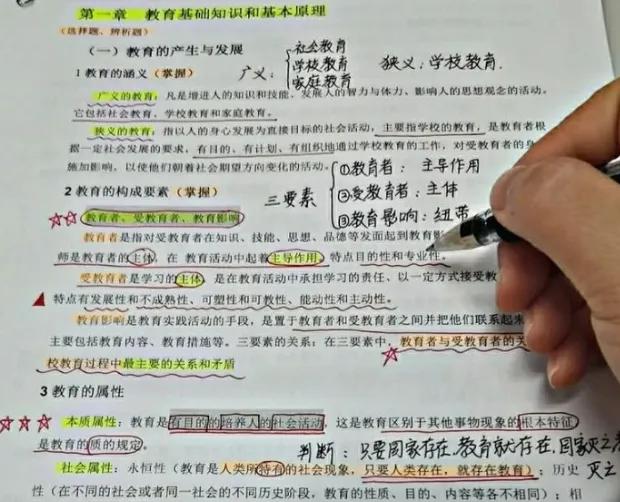 第一章 教育基础知识和基本原理
(选择题、辨析题)
（一）教育的产生与发展
社会教育
学校教育
家庭教育
广义：
狭义：学校教育.
1 教育的涵义（掌握）
广义的教育：凡是增进人的知识和技能、发展人的智力与体力、影响人的思想观念的活动。
它包括社会教育、学校教育和家庭教育。
狭义的教育：指以人的身心发展为直接目标的社会活动，主要指学校的教育，是教育者根
据一定社会发展的要求，有目的、有计划、有组织地通过学校教育的工作，对受教育者的身
施加影响，以使他们朝着社会期望方向变化的活动。
三要素
①教育者：主导作用
②受教育者：主体
③教育影响：纽带
2 教育的构成要素（掌握）
教育者、受教育者、教育影响
教育者是指对受教育者在知识、技能、思想、品德等发面起到教育影
师是教育者的主体，在 教育活动中起着主导作用，特点目的性和专业性。
受教育者是学习的主体，是在教育活动中承担学习的责任、以一定方式接受教
特点有发展性和不成熟性、可塑性和可教性、能动性和主动性。
教育影响是教育实践活动的手段，是置于教育者和受教育者之间并把他们联系起来
主要包括教育内容、教育措施等。三要素的关系：在三要素中，教育者与受教育者的关
校教育过程中最主要的关系和矛盾
3 教育的属性
本质属性：教育是有目的的培养人的社会活动，这是教育区别于其他事物现象的根本特征，
是教育的质的规定。
判断：只要国家存在,教育就存在,国家灭亡
灭亡
社会属性：永恒性（教育是人类所特有的社会现象，只要人类存在，就存在教育）；历史
性（在不同的社会或者同一社会的不同历史阶段，教育的性质、目的、内容等各不相同）；相